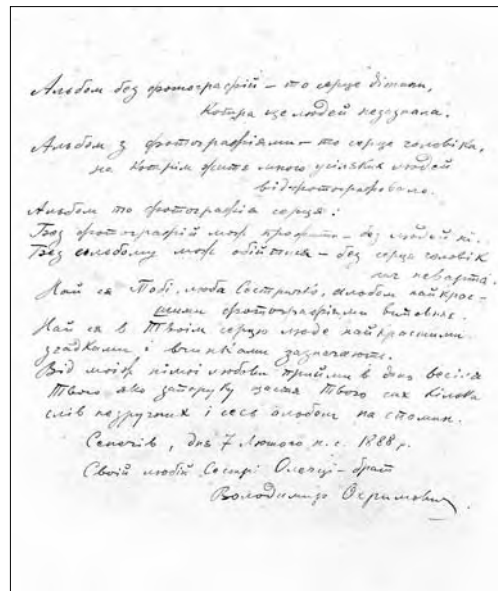 Альбом без фотографій – то серце дітини,
Котра ще людей незазнала.
Альбом з фотографіями – то серце чоловіка,
на котрім житє много усіляких людей
відфотографовало.
Альбом то фотографія серця:
Без фотографій мож прожити – без людей ні.
Без альбому мож обійтися – без серця чоловік
нич неварта.
Най ся Тобі, люба Сестричко, альбом найкрас-
шими фотографіями виповняє.
Най ся в Твоім серцю люде найкрасшими
згадками і вчинками зазначають.
Від моєї німої любови прийми в день весіля
Твого яко запоруку щастя Твого сих кілька
слів незручних і сесь альбом на спомин.
Сенечів, дня 7 Лютого н. с. 1888 р.
Своій любій Сестрі Олесці – брат
Володимир Охримович.